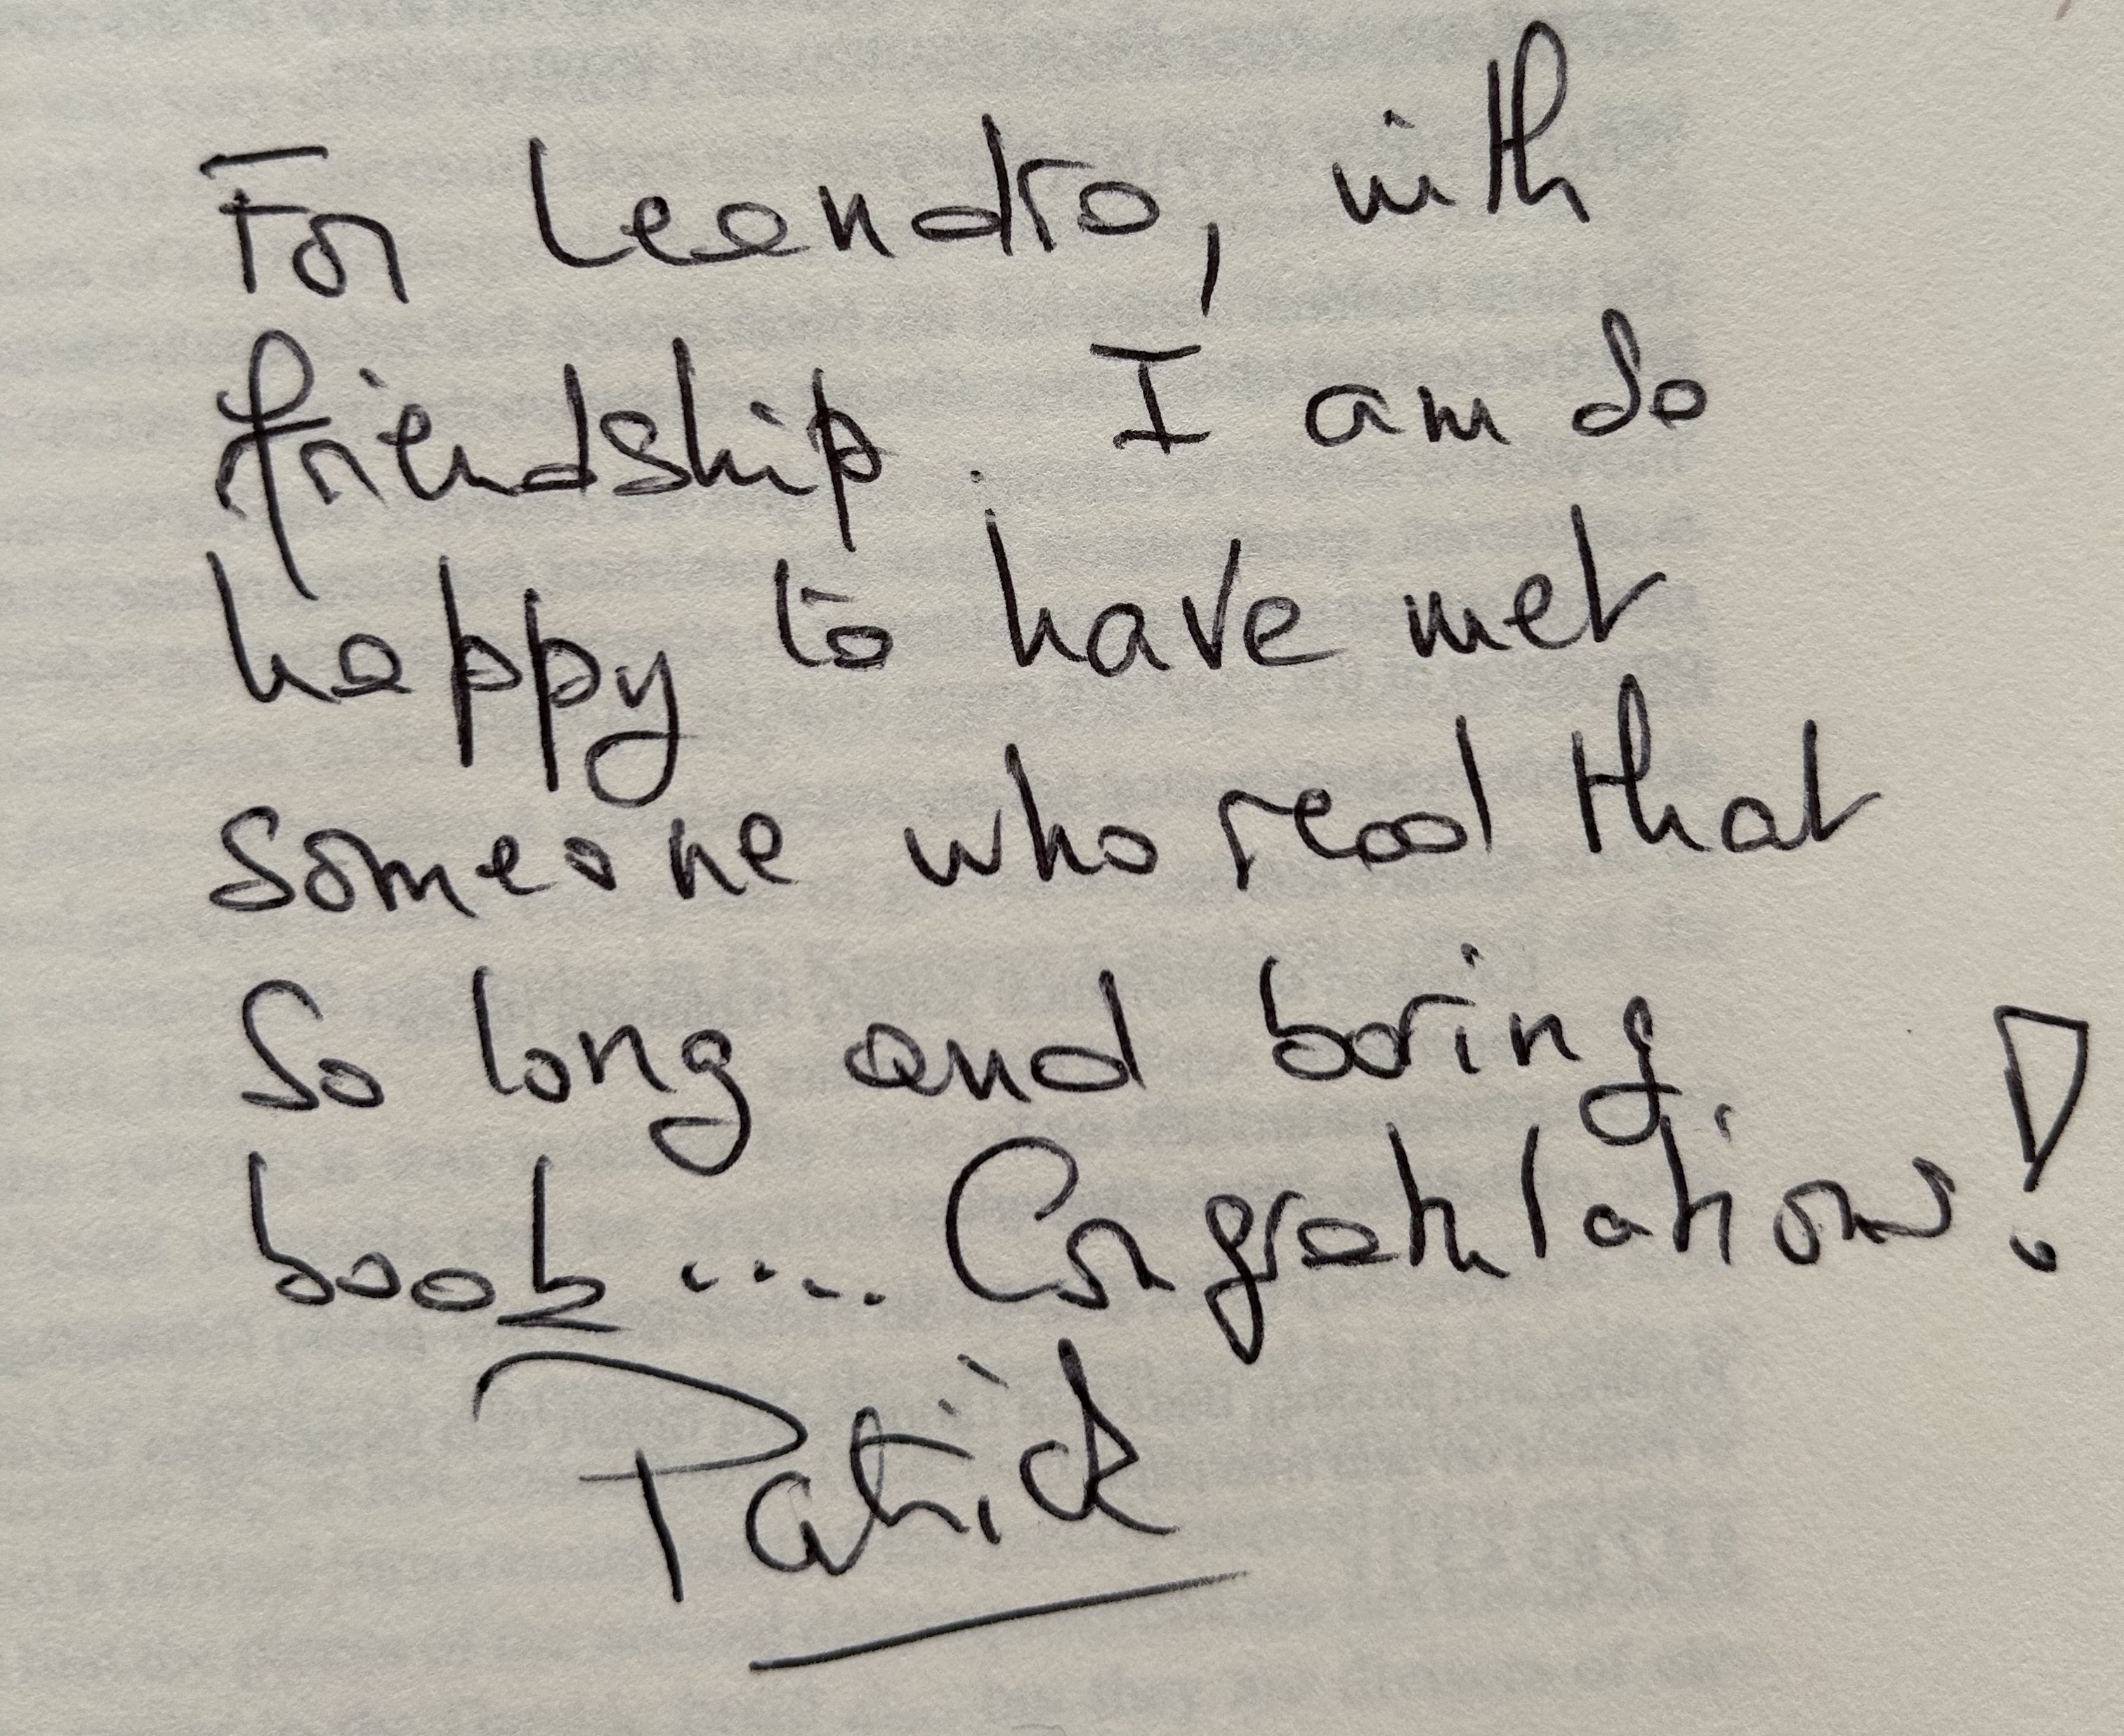 For Leandro, with
friendship. I am so
happy to have met
someone who read that
so long and boring
book.... Congratulations!
Patrick